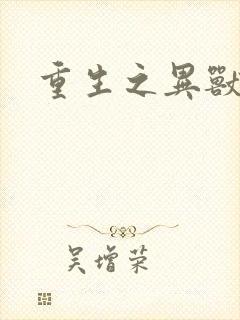 重生之異獸
吴增荣